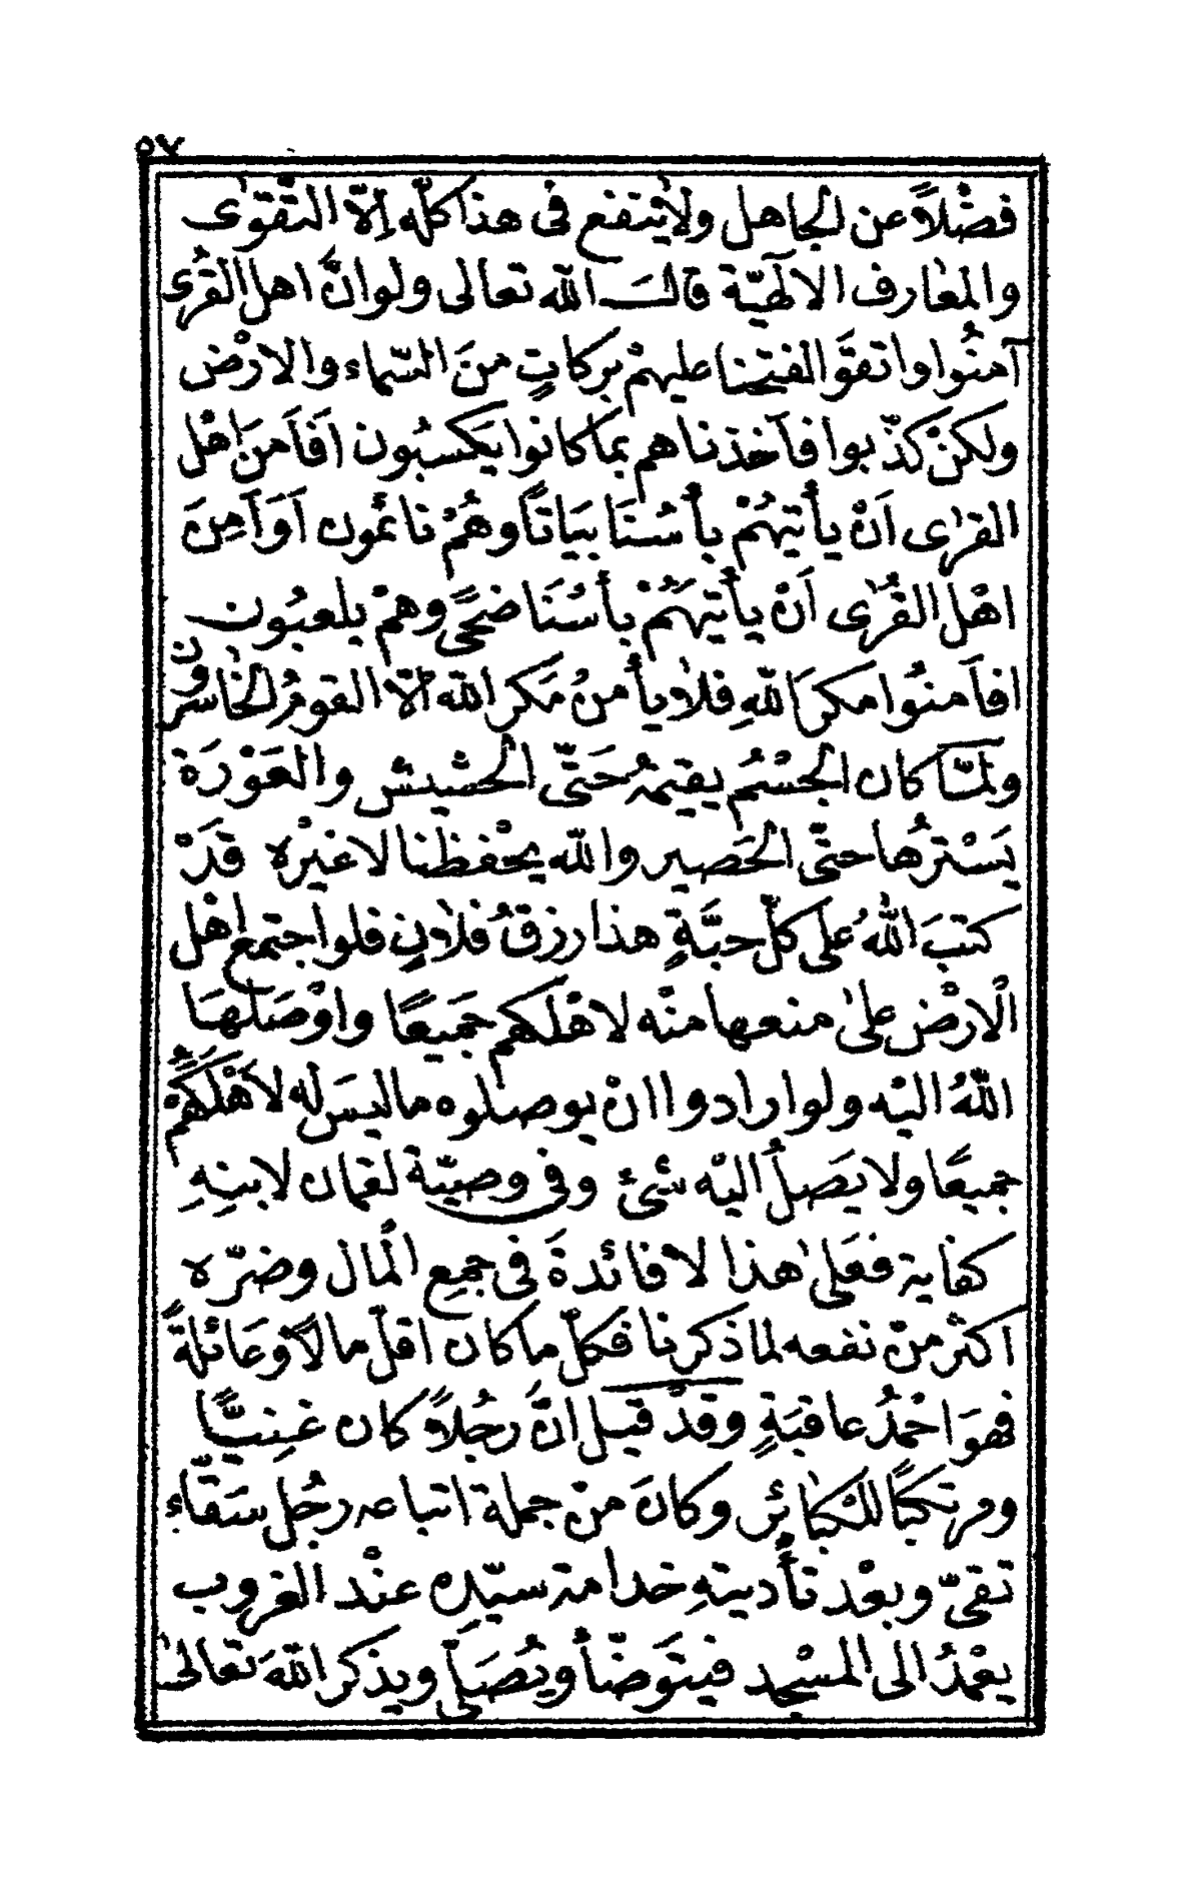 ٥٧
فضْلاً عن الجاهل ولا يُنتفع فى هذا كلّه اِلاّ التّقوٰى
والمعٰارف الالٓهيّة قالــ الله تعالى ولو انّ اهل القُرٰى
آمنُوا واتقَوَّا لفتحنا عليهمْ بركاتٍ منَ السّماء والارْض
ولكنْ كذّبوا فاَخذناهم بما كانوا يكسبُون اَفَاَمنَ اهْل
القرٰى اَنْ يأتيَهُمْ بأسُنَا بيَاتًا وهُمْ نائمُون اَوَاَمِنَ
اهْل القُرٰى اَنْ يأتيَهُمْ بأسُنَا ضحًى وهمْ يلعبُون
افاَمنوُا مكرَ اللهِ فلاٰ يأمنُ مَكر الله الاّ القومُ الخٰاسرون
ولمّا كان الجسْمُ يقيمُه حَتّى الحشيش والعَوْرَة
يَسْترُها حتّى الحَصير والله يحْفظنا لا غيْره قَدْ
كتبَ اللهُ على كلّ حبَّةٍ هذا رزقُ فلاٰنٍ فلو اجتمع اهْل
الْارْض علىٰ منعها منْه لاهْلكهم جَميعًا واوْصَلهَا
اللهُ اليْه ولو ارادوا انْ يوصلوه ما ليسَ له لاَهْلكَهُمْ
جميعًا ولا يَصلُ اليْه شئ وفى وصيّة لقمان لابنِهِ
كفاية فعَلىٰ هٰذا لا فائدةَ فى جمعِ الْمال وضرّه
اكثرُ منْ نفعه لما ذكرنا فكلّ ما كان اقلّ مالاً وعَائلةً
فهوَ احْمدُ عاقبَةٍ وقدْ قيل انَّ رجُلاً كان غنِيًّا
ومرتكبًا للكبٰائر وكانَ منْ جملة اتباعه رجُل سَقّاءٍ
تقىّ وبعْد تأديتهِ خدامة سيّده عنْد الغروب
يعْمدُ الى المسْجد فيتوَضّأ ويُصَلّى ويذكر اللهَ تعالىٰ